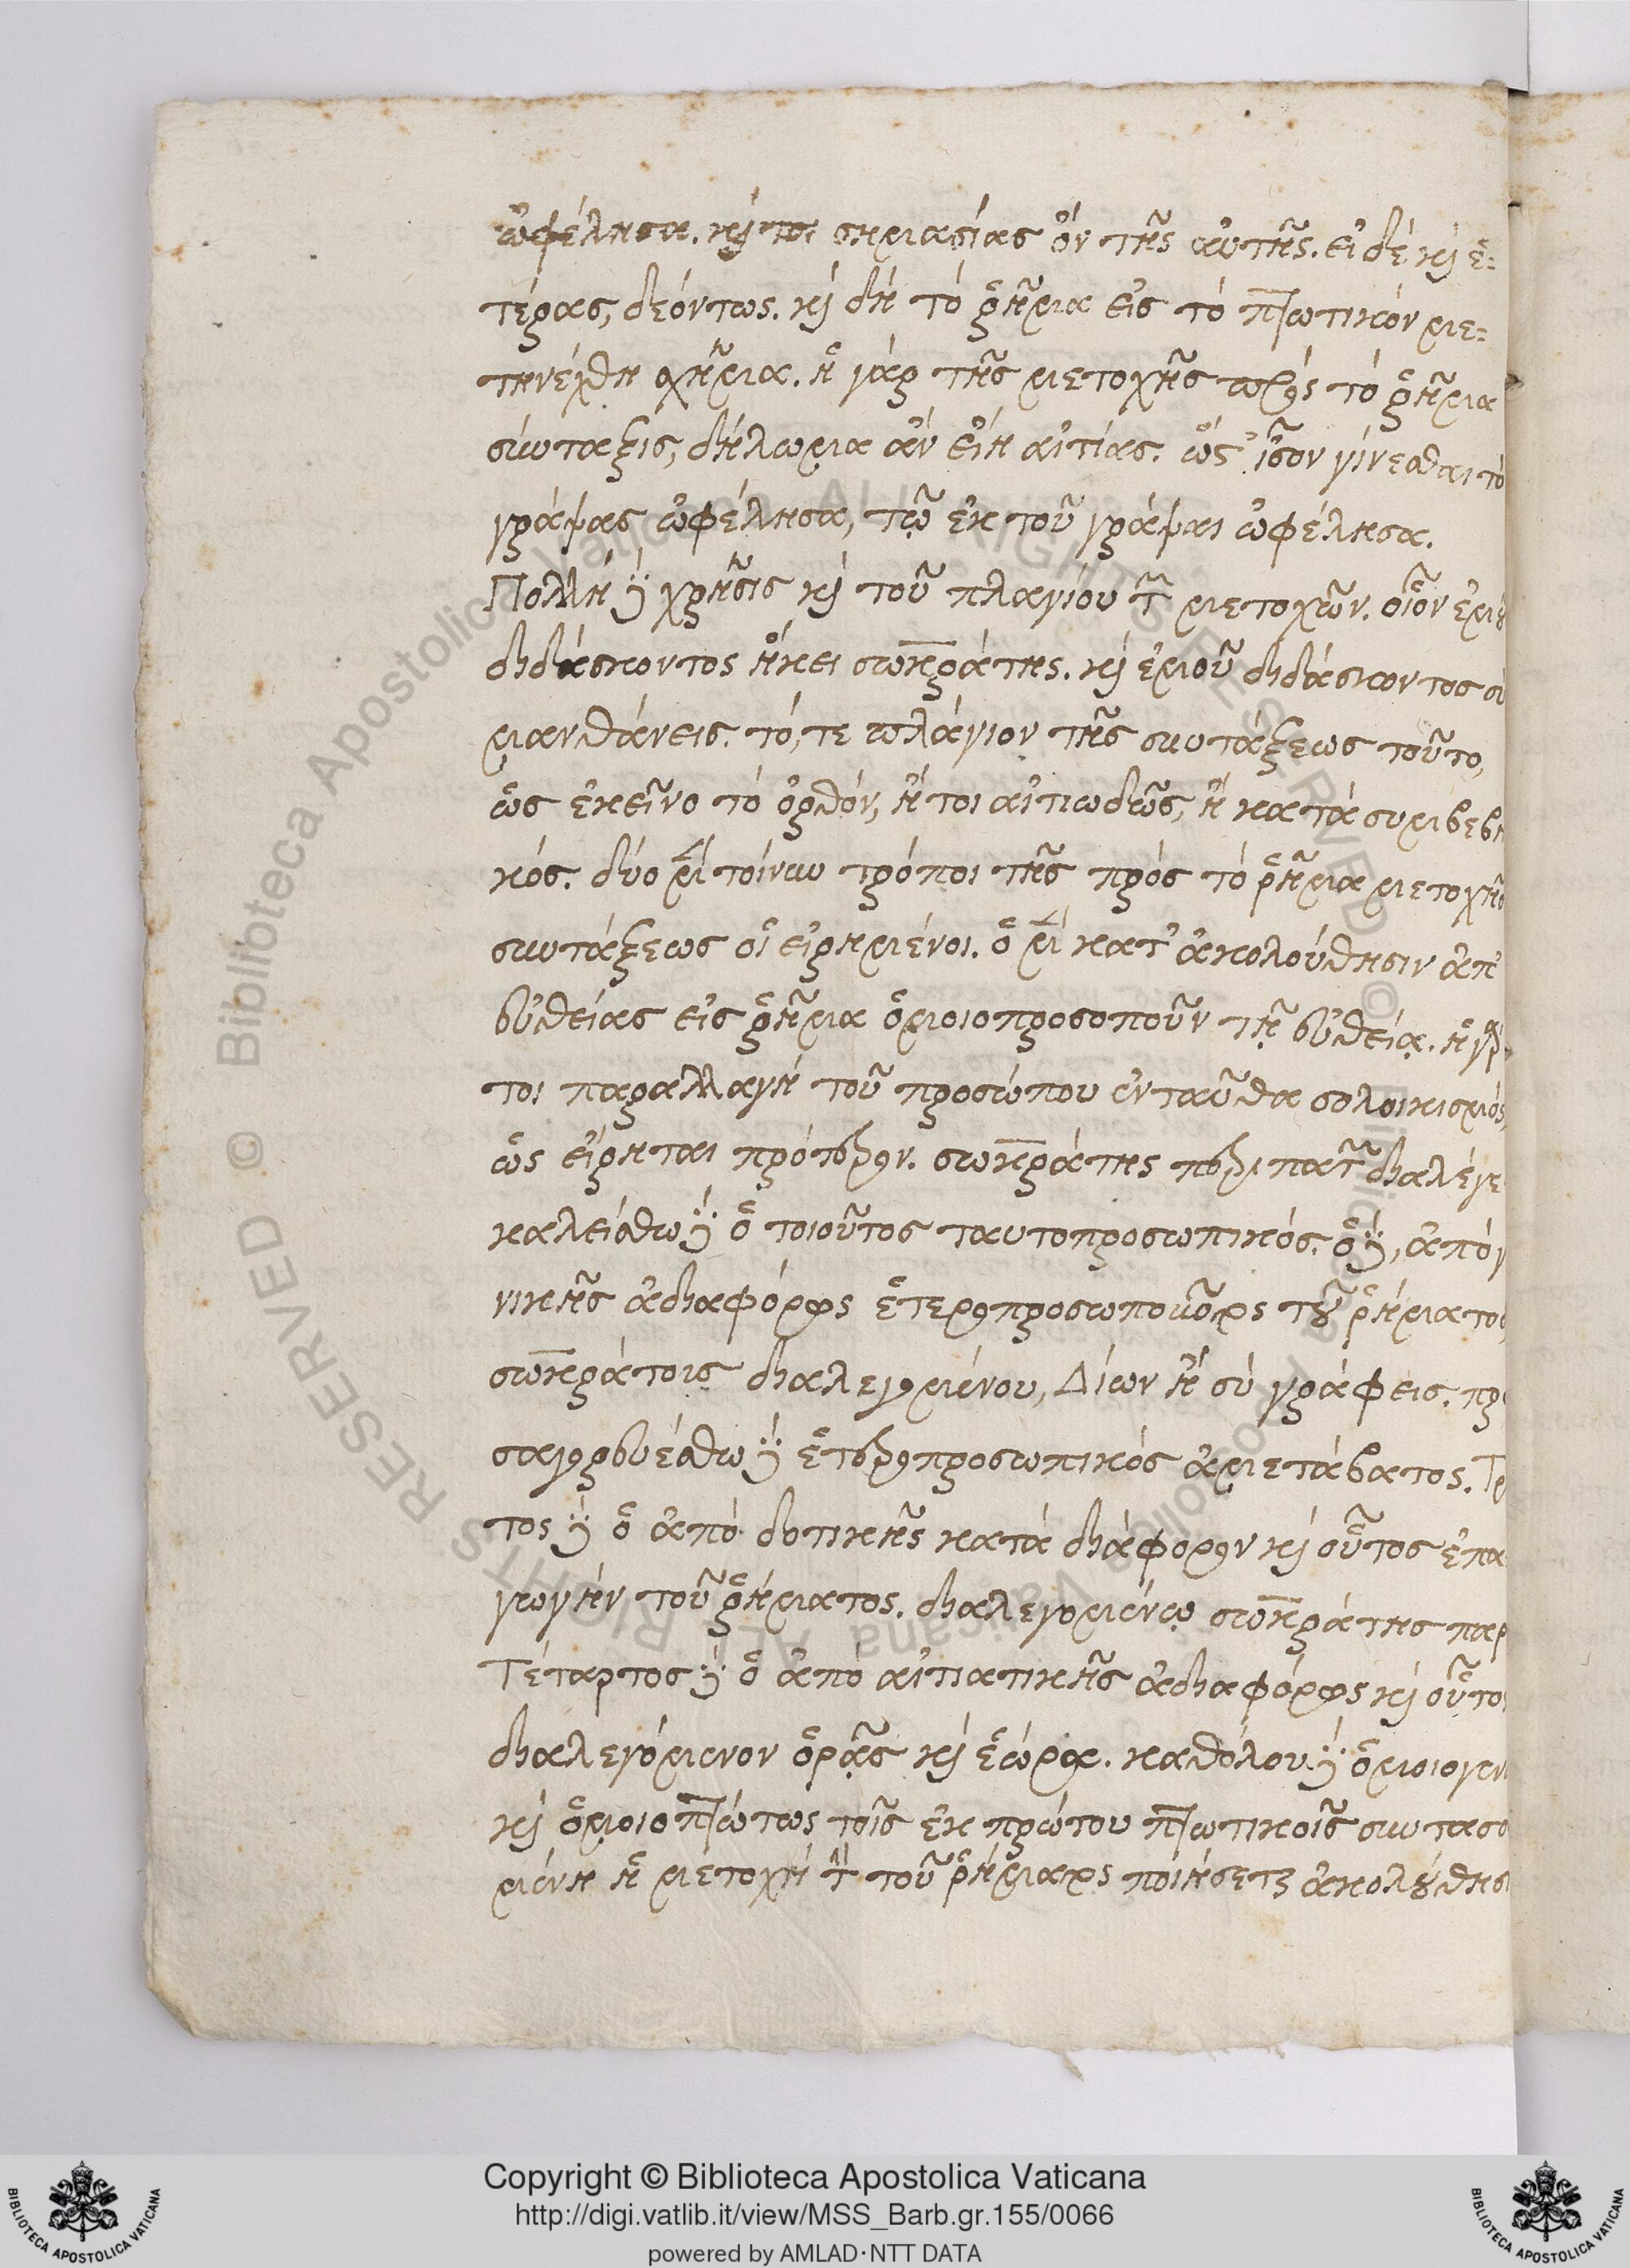 ὠφέλησα. καίτοι σημασίας ὂν τῆς αὐτῆς. εἰ δὲ καὶ ἑ-
τέρας, δεόντως. καὶ δὴ τὸ ῥῆμα εἰς τὸ πτωτικὸν με-
τηνέχθη σχῆμα. ἡ γὰρ τῆς μετοχῆς πρὸς τὸ ῥῆμα
σύνταξις, δήλωμα ἂν εἴη αἰτίας. ὥστ' ἴσον γίνεσθαι τὸ
γράψας ὠφέλησα, τῷ ἐκ τοῦ γράψαι ὠφέλησα.
Πολλὴ δὲ χρῆσις καὶ τοῦ πλαγίου τῶν μετοχῶν. οἷον ἐμοῦ
διδάσκοντος ἥκει σωκράτης. καὶ ἐμοῦ διδάσκοντος σὺ
μανθάνεις. τό, τε πλάγιον τῆς συντάξεως τοῦτο,
ὡς ἐκεῖνο τὸ ὀρθόν, ἤτοι αἰτιωδῶς, ἢ κατὰ συμβεβη
κός. δύο μὲν τοίνυν τρόποι τῆς πρὸς τὸ ῥῆμα μετοχῆς
συντάξεως οἱ εἰρημένοι. ὁ μὲν κατ' ἀκολούθησιν ἀπ'
εὐθείας εἰς ῥῆμα ὁμοιοπροσοποῦν τῇ εὐθείᾳ. ἡ γάρ
τοι παραλλαγὴ τοῦ προσώπου ἐνταῦθα σολοικισμός,
ὡς εἴρηται πρότερον. σωκράτης περιπατῶν διαλέγε
καλείσθω δὲ ὁ τοιοῦτος ταυτοπροσωπικός. ὁ δὲ, ἀπὸ γ
νικῆς ἀδιαφόρως ἑτεροπροσωποῦντος τοῦ ῥήματος,
σωκράτους διαλεγομένου, Δίων ἢ σὺ γράφεις. προ
σαγορευέσθω δὲ ἑτεροπροσωπικὸς ἀμετάβατος. Τρ
τος δὲ ὁ ἀπὸ δοτικῆς κατὰ διάφορον καὶ οὗτος ἐπα
γωγὴν τοῦ ῥήματος. διαλεγομένῳ σωκράτης παρ
Τέταρτος δὲ ὁ ἀπὸ αἰτιατικῆς ἀδιαφόρως καὶ οὗτος
διαλεγόμενον ὁρᾷς καὶ ἑώρα. καθόλου δὲ ὁμοιογεν
καὶ ὁμοιοπτώτως τοῖς ἐκ πρώτου πτωτικοῖς συντασσο
μένη ἡ μετοχὴ τὴν τοῦ ῥήματος ποιήσεται ἀκολούθησι